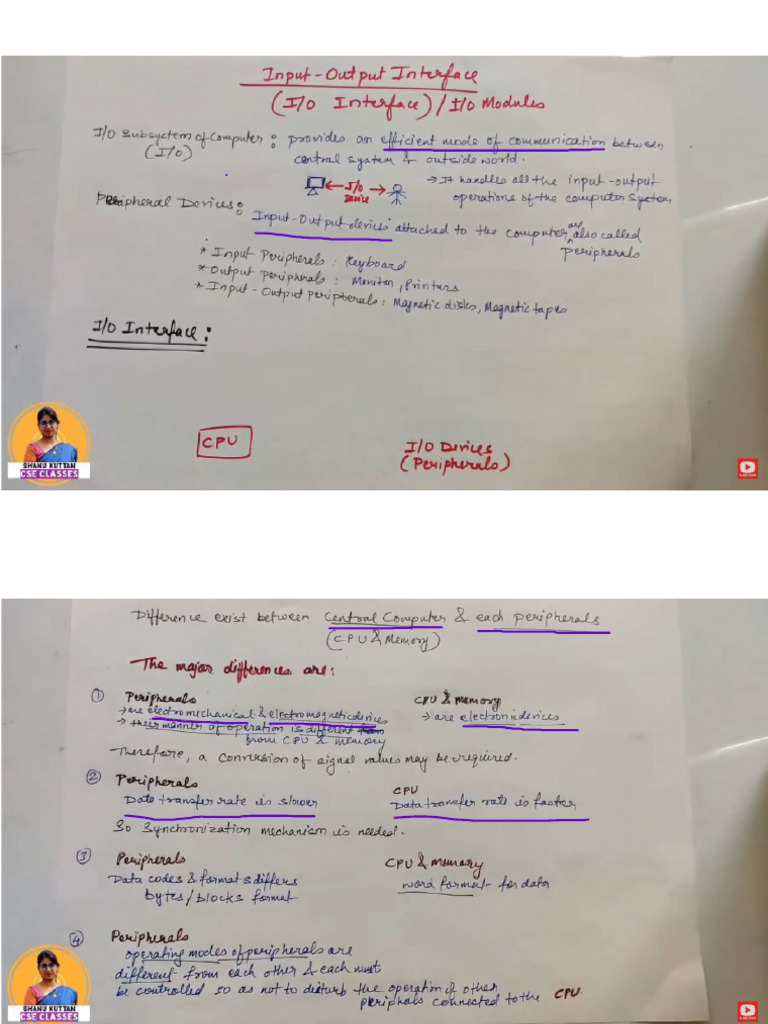 Input-Output Interface
(I/O Interface)/I/O Modules
I/O Subsystem of Computer: provides an efficient mode of communication between
(I/O) central system & outside world.
→ It handles all the input-output
operations of the computer system
I/O
DEVICE
Peripheral Devices:
Input-Output devices attached to the computer are also called
peripherals
* Input Peripherals: Keyboard
* Output Peripherals: Monitor, Printers
* Input-Output Peripherals: Magnetic disks, Magnetic tapes
I/O Interface:
CPU
I/O Devices
(Peripherals)
SHANU KUTTAN
CSE CLASSES
Difference exist between Central Computer & each peripherals
(CPU & Memory)
The major differences are:
① Peripherals CPU & memory
→ are electromechanical & electromagnetic devices → are electronic devices
→ their manner of operation is different from
from CPU & memory
Therefore, a conversion of signal values may be required.
② Peripherals CPU
Data transfer rate is slower Data transfer rate is faster
So Synchronization mechanism is needed.
③ Peripherals CPU & memory
Data codes & formats differs word format for data
bytes/blocks format
④ Peripherals
operating modes of peripherals are
different from each other & each must
be controlled so as not to disturb the operation of other
periphals connected to the CPU.
SHANU KUTTAN
CSE CLASSES